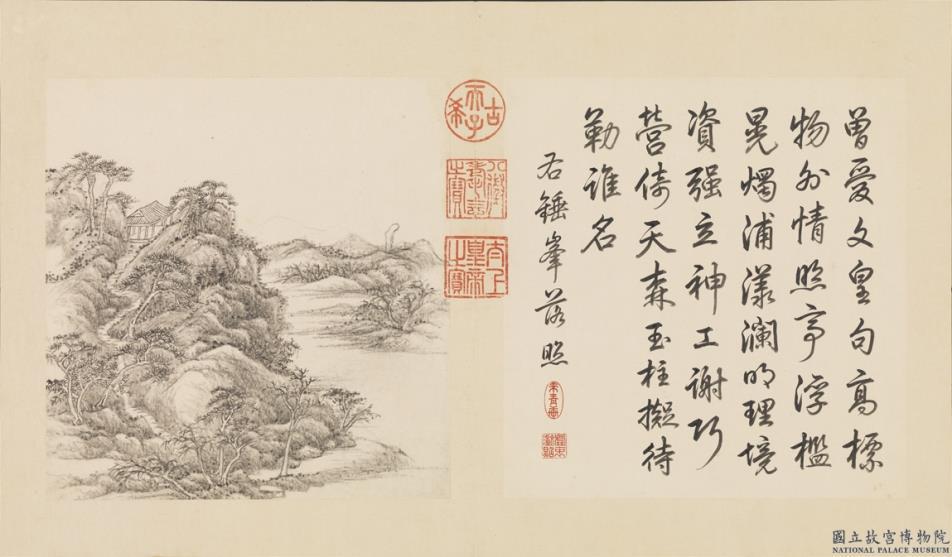 曾愛文皇句高標
物外情照亭浮檻
晃燭浦漾瀾明理境
資强立神工謝巧
營倚天森玉柱擬待
勒誰名
右錘峯落照
古希天子
八徵耄念之寶
太上皇帝之寶
國立故宮博物院
NATIONAL PALACE MUSEUM